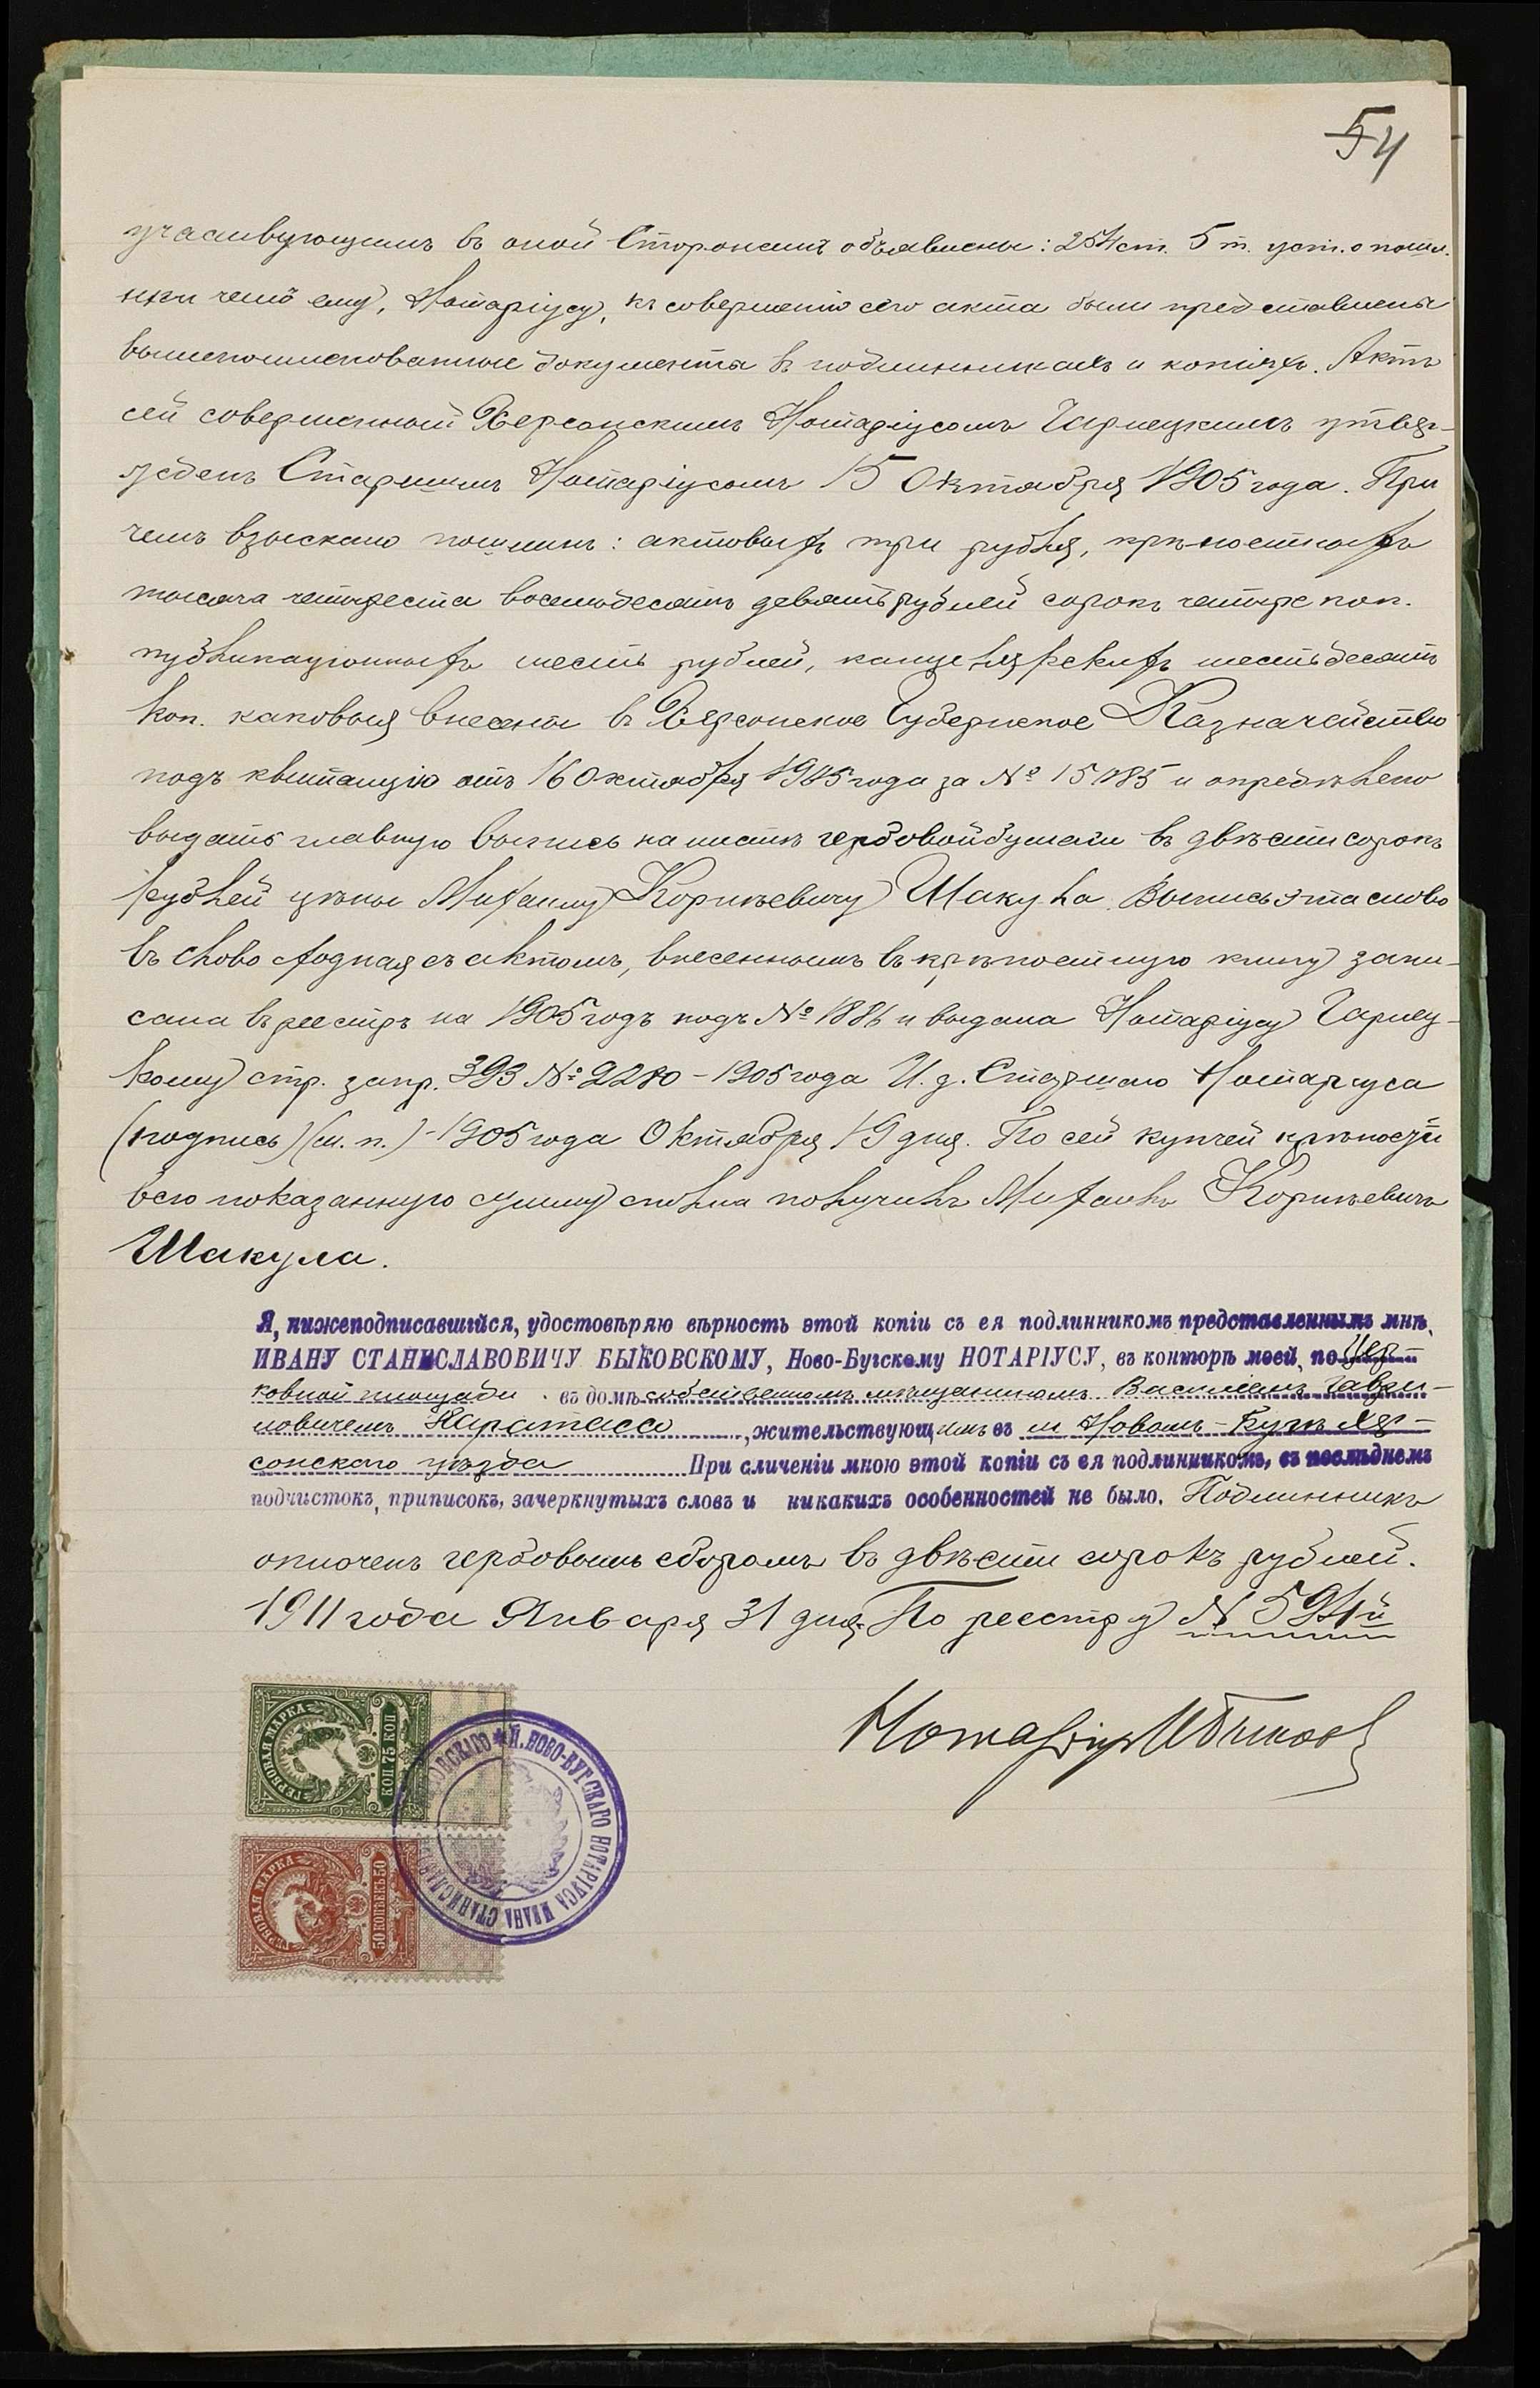 54
участвующимъ въ оной Сторонамъ объявлены: 254 ст. 5 т. уст. о пошл.
при чемъ ему, Нотаріусу, къ совершенію сего акта были представлены
вышепоименованные документы въ подлинникахъ и копіяхъ. Актъ
сей совершенный Херсонскимъ Нотаріусомъ Гарнецкимъ утвер-
жденъ Старшимъ Нотаріусомъ 15 Октября 1905 года. При
чемъ взыскано пошлинъ: актовыхъ три рубля, крѣпостныхъ
тысяча четыреста восемьдесятъ девять рублей сорокъ четыре коп.
публикаціонныхъ шесть рублей, канцелярскихъ шестьдесятъ
коп. каковыя внесены въ Херсонское Губернское Казначейство
подъ квитанцію отъ 16 Октября 1905 года за № 15185 и опредѣлено
выдать главную выпись на листѣ гербовой бумаги въ двѣсти сорокъ
рублей цѣны Михаилу Корнѣевичу Шакула. Выпись эта слово
въ слово сходная съ актомъ, внесеннымъ въ крѣпостную книгу запи-
сана въ реестръ на 1905 годъ подъ № 1886 и выдана Нотаріусу Гарнец-
кому стр. запр. 393 № 2280 - 1905 года И. д. Старшаго Нотаріуса
(подпись) (м. п.) - 1905 года Октября 19 дня. По сей купчей крѣпости
всю показанную сумму сполна получилъ Михаилъ Корнѣевичъ
Шакула.
Я, нижеподписавшійся, удостовѣряю вѣрность этой копіи съ ея подлинникомъ представленнымъ мнѣ,
ИВАНУ СТАНИСЛАВОВИЧУ БЫКОВСКОМУ, Ново-Бугскому НОТАРІУСУ, въ конторѣ моей, по Цер-
ковной площади въ домѣ собственномъ мѣщаниномъ Василіемъ Гаври-
ловичемъ Каратассо, жительствующимъ въ м. Новомъ-Бугѣ Хер-
сонскаго уѣзда При сличеніи мною этой копіи съ ея подлинникомъ, въ послѣднемъ
подчистокъ, приписокъ, зачеркнутыхъ словъ и никакихъ особенностей не было. Подлинникъ
оплоченъ гербовымъ сборомъ въ двѣсти сорокъ рублей.
1911 года Января 31 дня. По реестру N 594й
Нотаріусъ
ГЕРБОВАЯ МАРКА
КОП 75 КОП
Н. НОВО-БУГСКАГО НОТАРІУСА ИВАНА СТАНИСЛАВ
ОВСКАГО
ГЕРБОВАЯ МАРКА
50 КОПѢЕКЪ 50